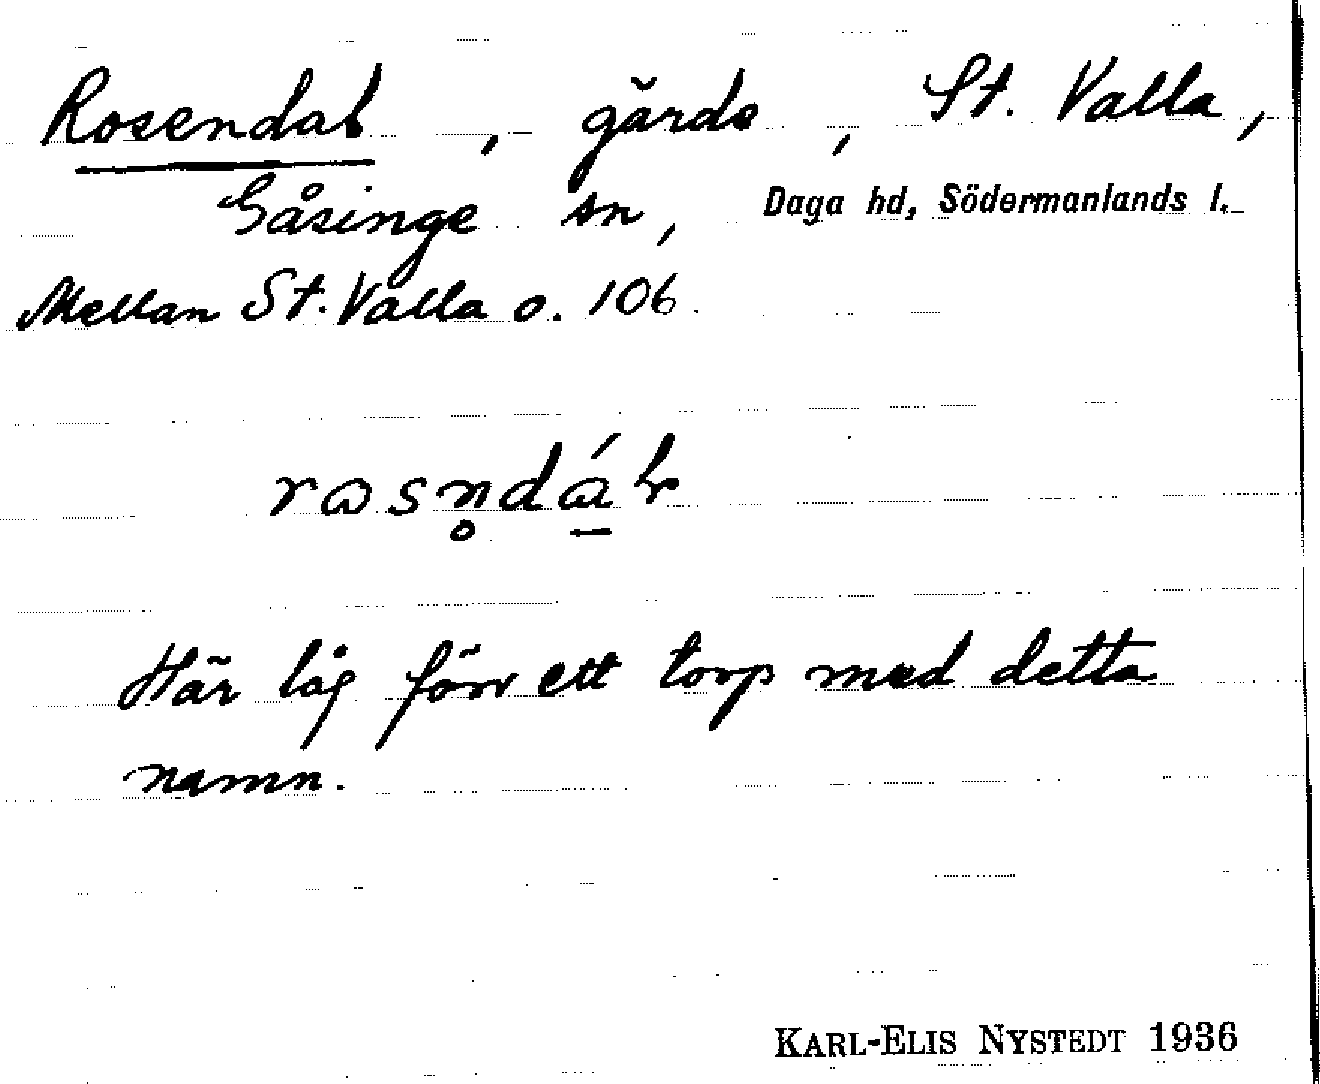 Rosendal, gärde, St. Valla,
Gåsinge sn, Daga hd, Södermanlands l.
Mellan St. Valla o. 106.
rɷsn̥dɷ̱́ɫ
Här låg förr ett torp med detta
namn.
KARL-ELIS NYSTEDT 1936